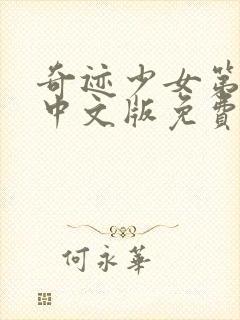 奇迹少女第
中文版免费
何永华